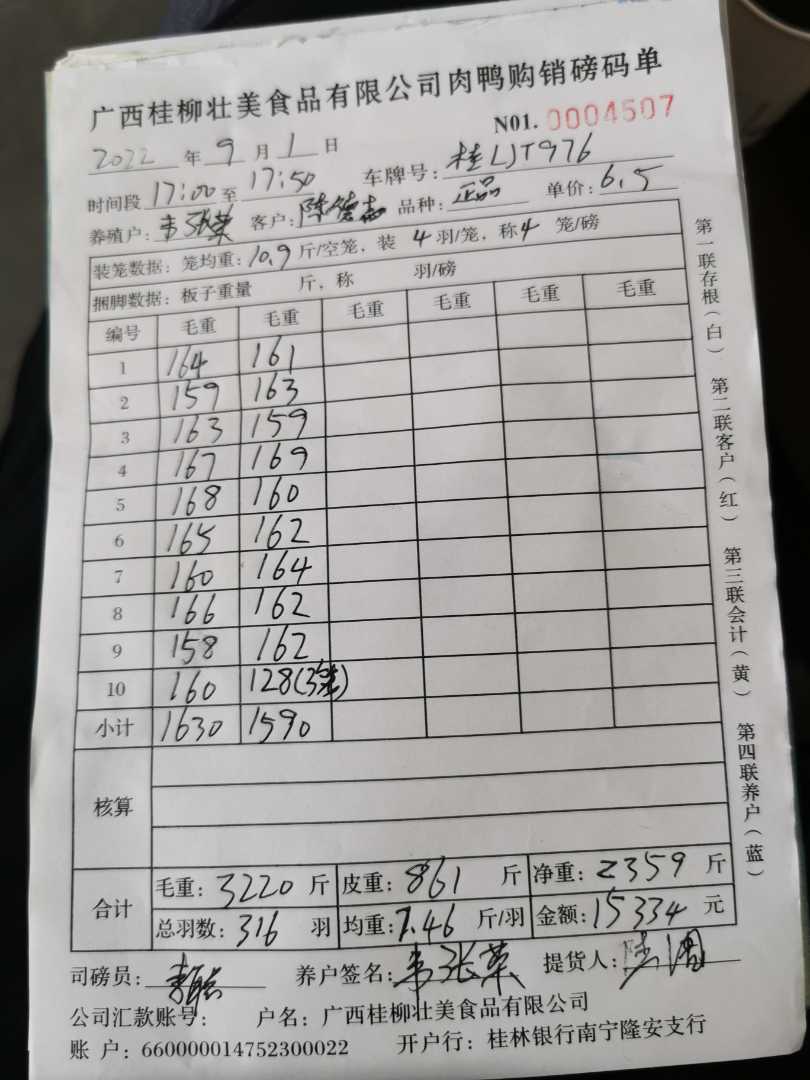 广西桂柳壮美食品有限公司肉鸭购销磅码单
N01. 0004507
2022 年 9 月 1 日
时间段 17:00 至 17:50 车牌号: 桂LJT976
养殖户: 韦张荣 客户: 陈德志 品种: 正品 单价: 6.5
装笼数据: 笼均重: 10.9 斤/空笼, 装 4 羽/笼, 称 4 笼/磅
捆脚数据: 板子重量 斤, 称 羽/磅
编号 毛重 毛重 毛重 毛重 毛重 毛重
1 164 161
2 159 163
3 163 159
4 167 169
5 168 160
6 165 162
7 160 164
8 166 162
9 158 162
10 160 128(3笼)
小计 1630 1590
核算
合计
毛重: 3220 斤 皮重: 861 斤 净重: 2359 斤
总羽数: 316 羽 均重: 7.46 斤/羽 金额: 15334 元
司磅员: 养户签名: 韦张荣 提货人:
公司汇款账号: 户名: 广西桂柳壮美食品有限公司
账 户: 660000014752300022 开户行: 桂林银行南宁隆安支行
第一联存根(白) 第二联客户(红) 第三联会计(黄) 第四联养户(蓝)